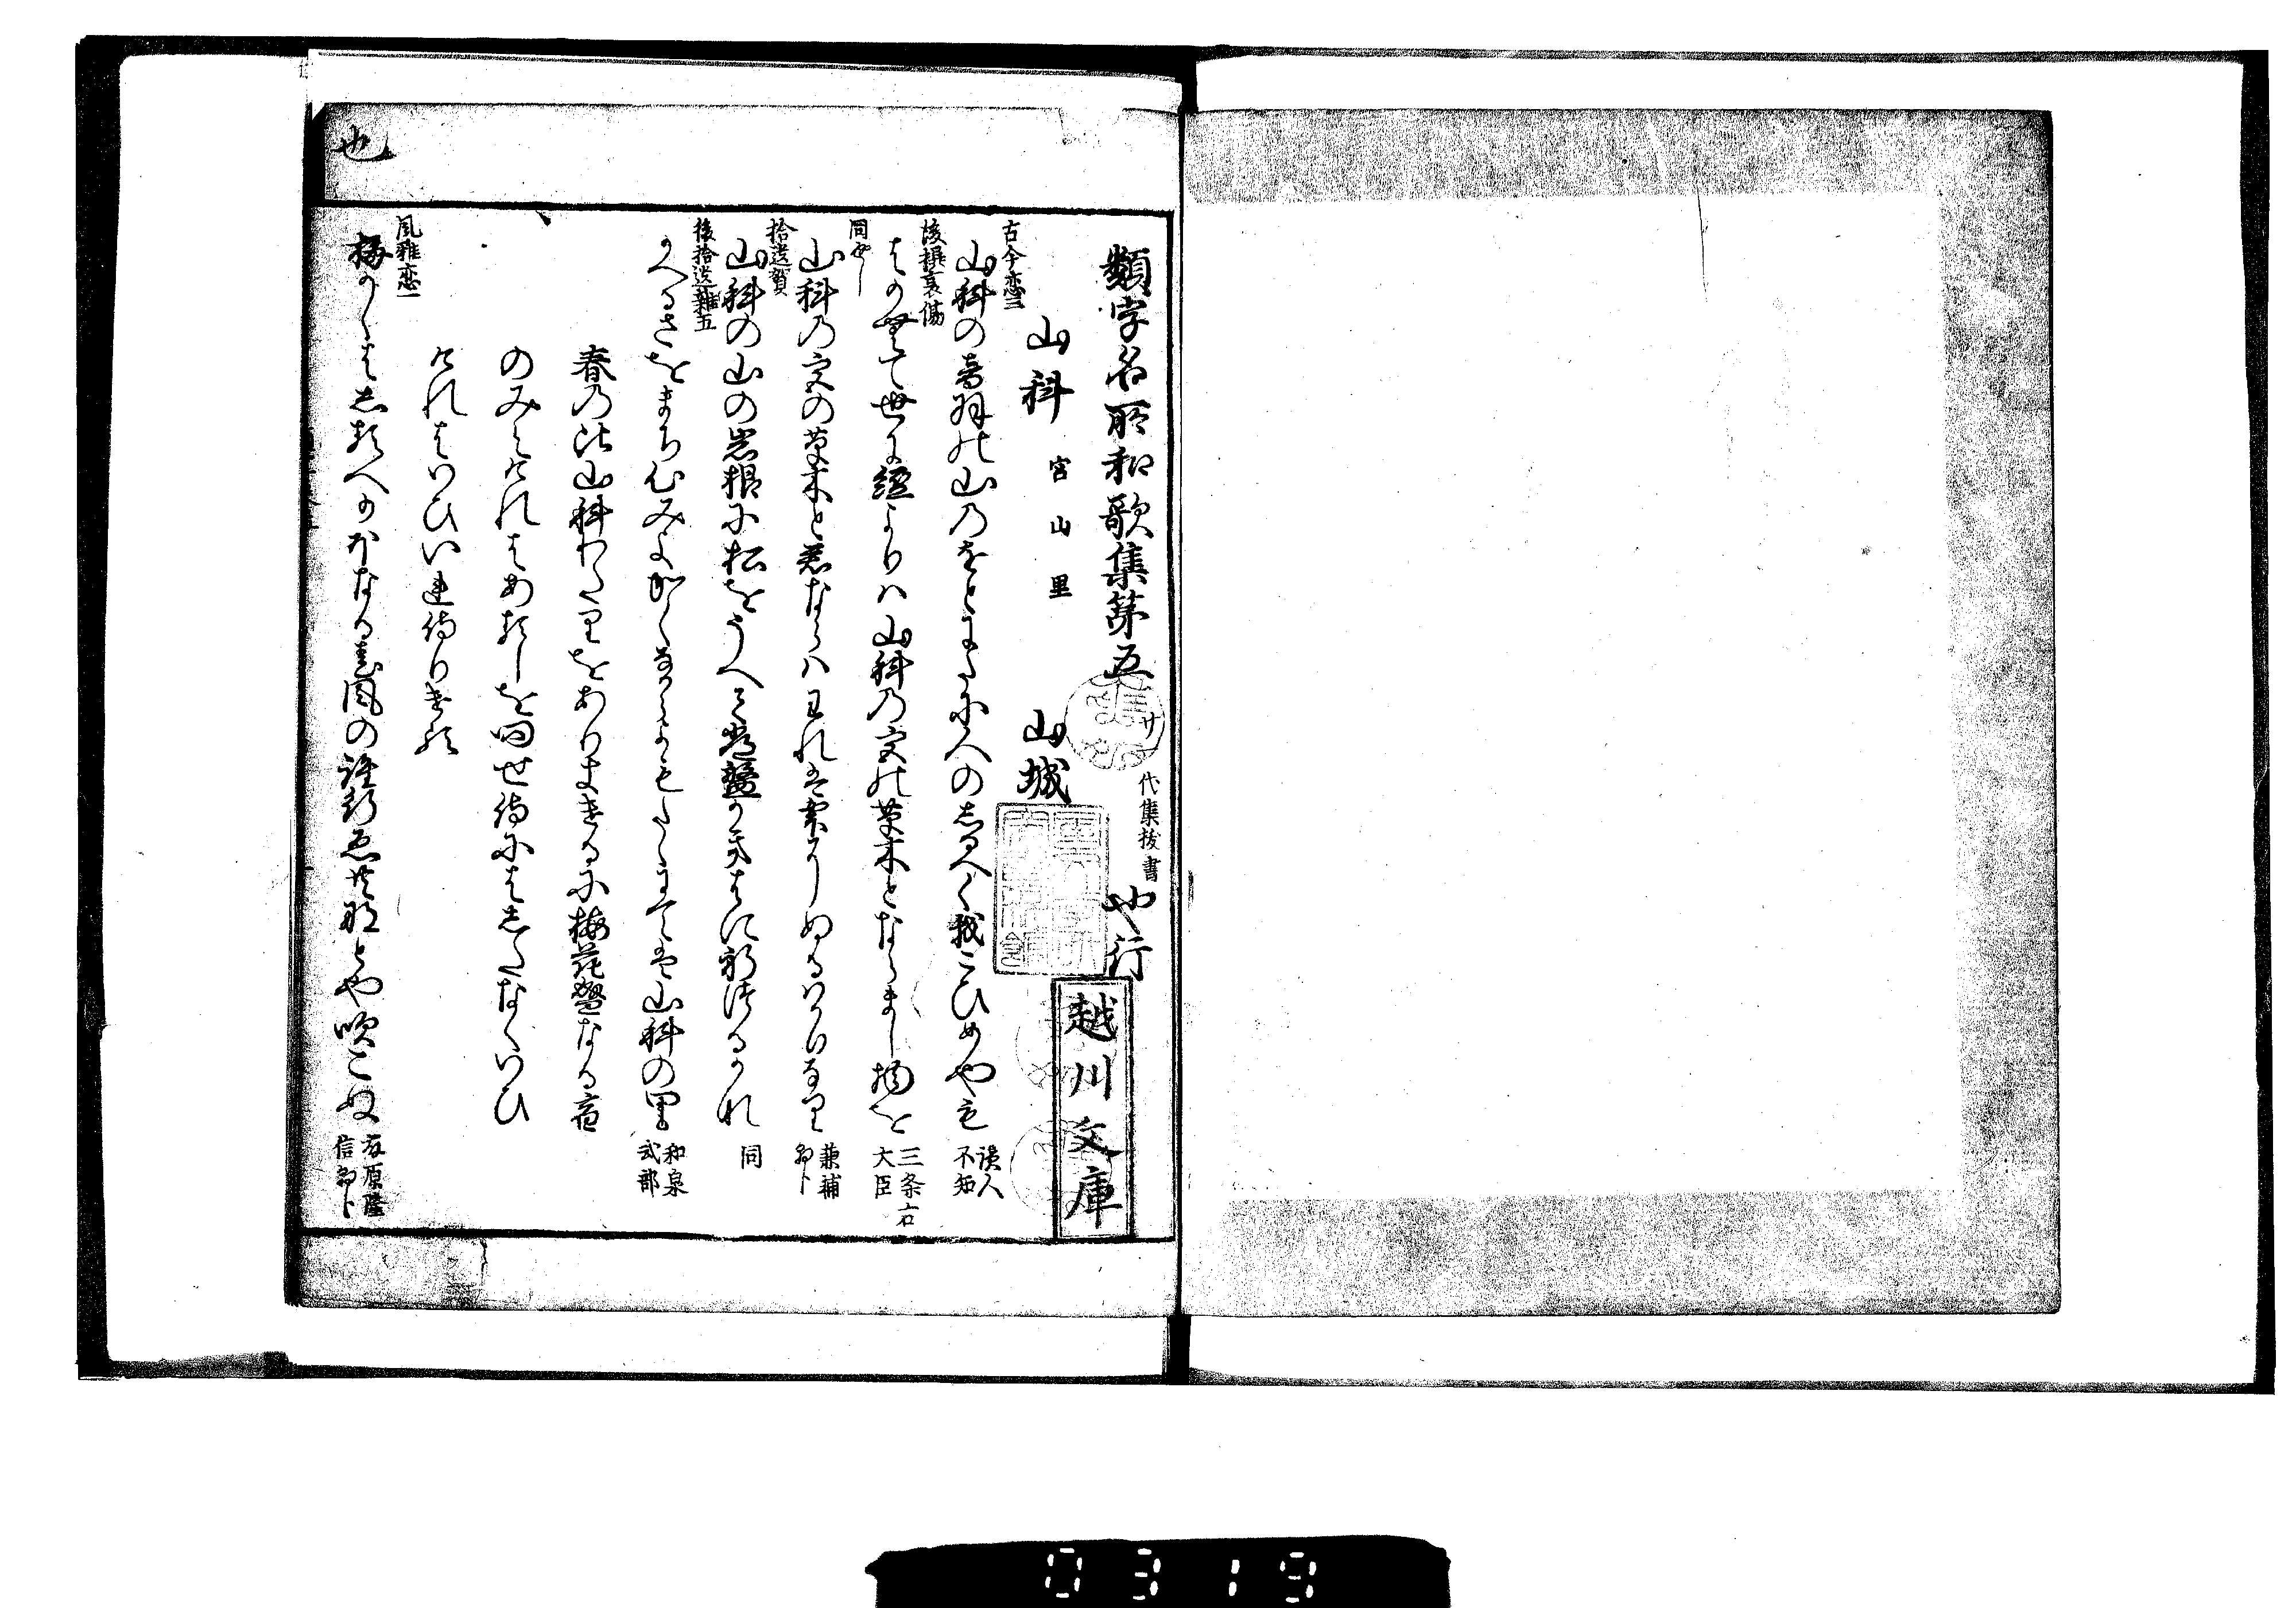 類字名所和歌集第五
廿一代集抜書
也行
越川文庫
山科 宮 山 里 山城
古今恋三
山科の音羽の山のをとにたに人のしるへく我こひめやも 読人不知
後撰哀傷
はかなくて世にふるよりは山科の宮の草木とならまし物を 三条右大臣
同 返し
山科の宮の草木と君ならはわれは雫にぬるはかりなり 兼輔卿
拾遺賀
山科の山の岩根に松をうへてときはかきはに祈つるかな 同
後拾遺雑五
かへるさをまち心みよかくなからよもたゝにては山科の里 和泉式部
春の比山科わたりをありきけるに梅花盛なる宿
のみえけれはあるしを問せ侍にはしたなくいひ
けれはいひいれ侍りける
風雅恋一
梅かゝはしるへかほなる春風の誰行ゑ共なとや吹こぬ 藤原隆信卿
也
0319